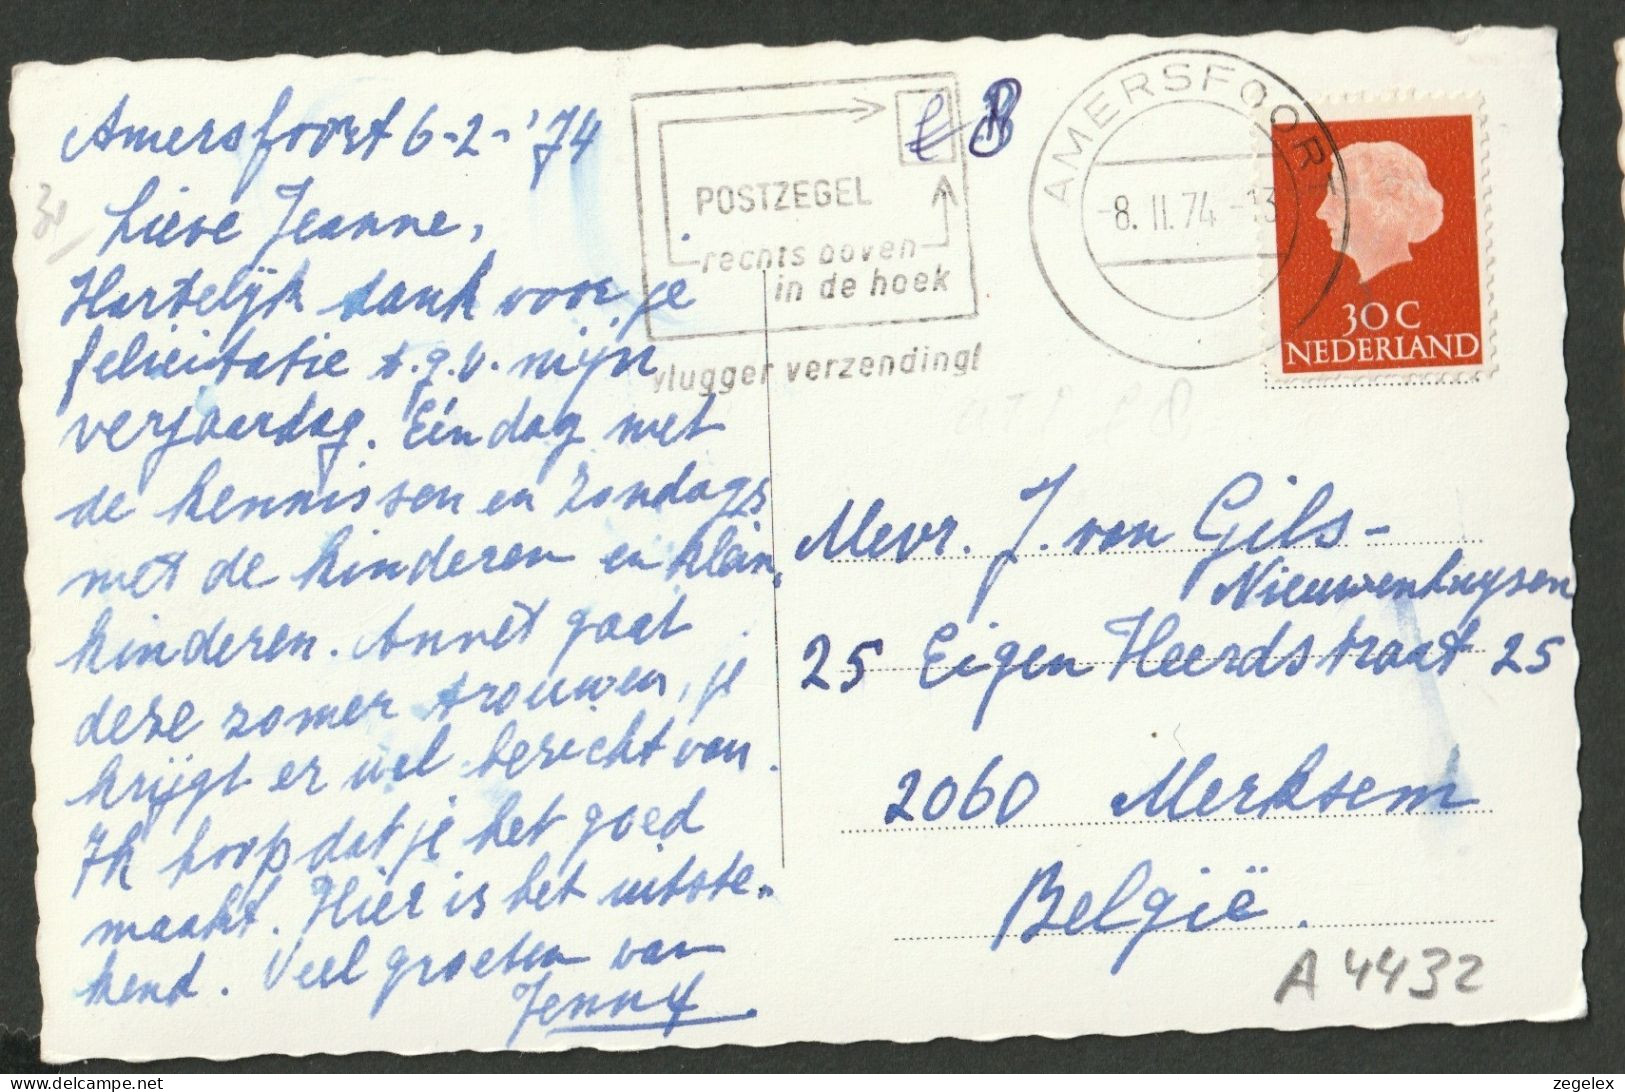 Amersfoort 6-2-'74
Lieve Jeanne,
Hartelijk dank voor je
felicitatie t.g.v. mijn
verjaardag. Eén dag met
de kennissen en zondags
met de kinderen en klein,
kinderen. Annet gaat
deze zomer trouwen, je
krijgt er wel bericht van.
Ik hoop dat je het goed
maakt. Hier is het uitste-
kend. Veel groeten van
Jenny.
POSTZEGEL
rechts boven
in de hoek
vlugger verzending!
AMERSFOORT
-8.II.74-13
30 C
NEDERLAND
Mevr. J. van Gils-
Nieuwenhuysen
25 Eigen Heerdstraat 25
2060 Merksem
België.
A 4432
30
zegelex
delcampe.net